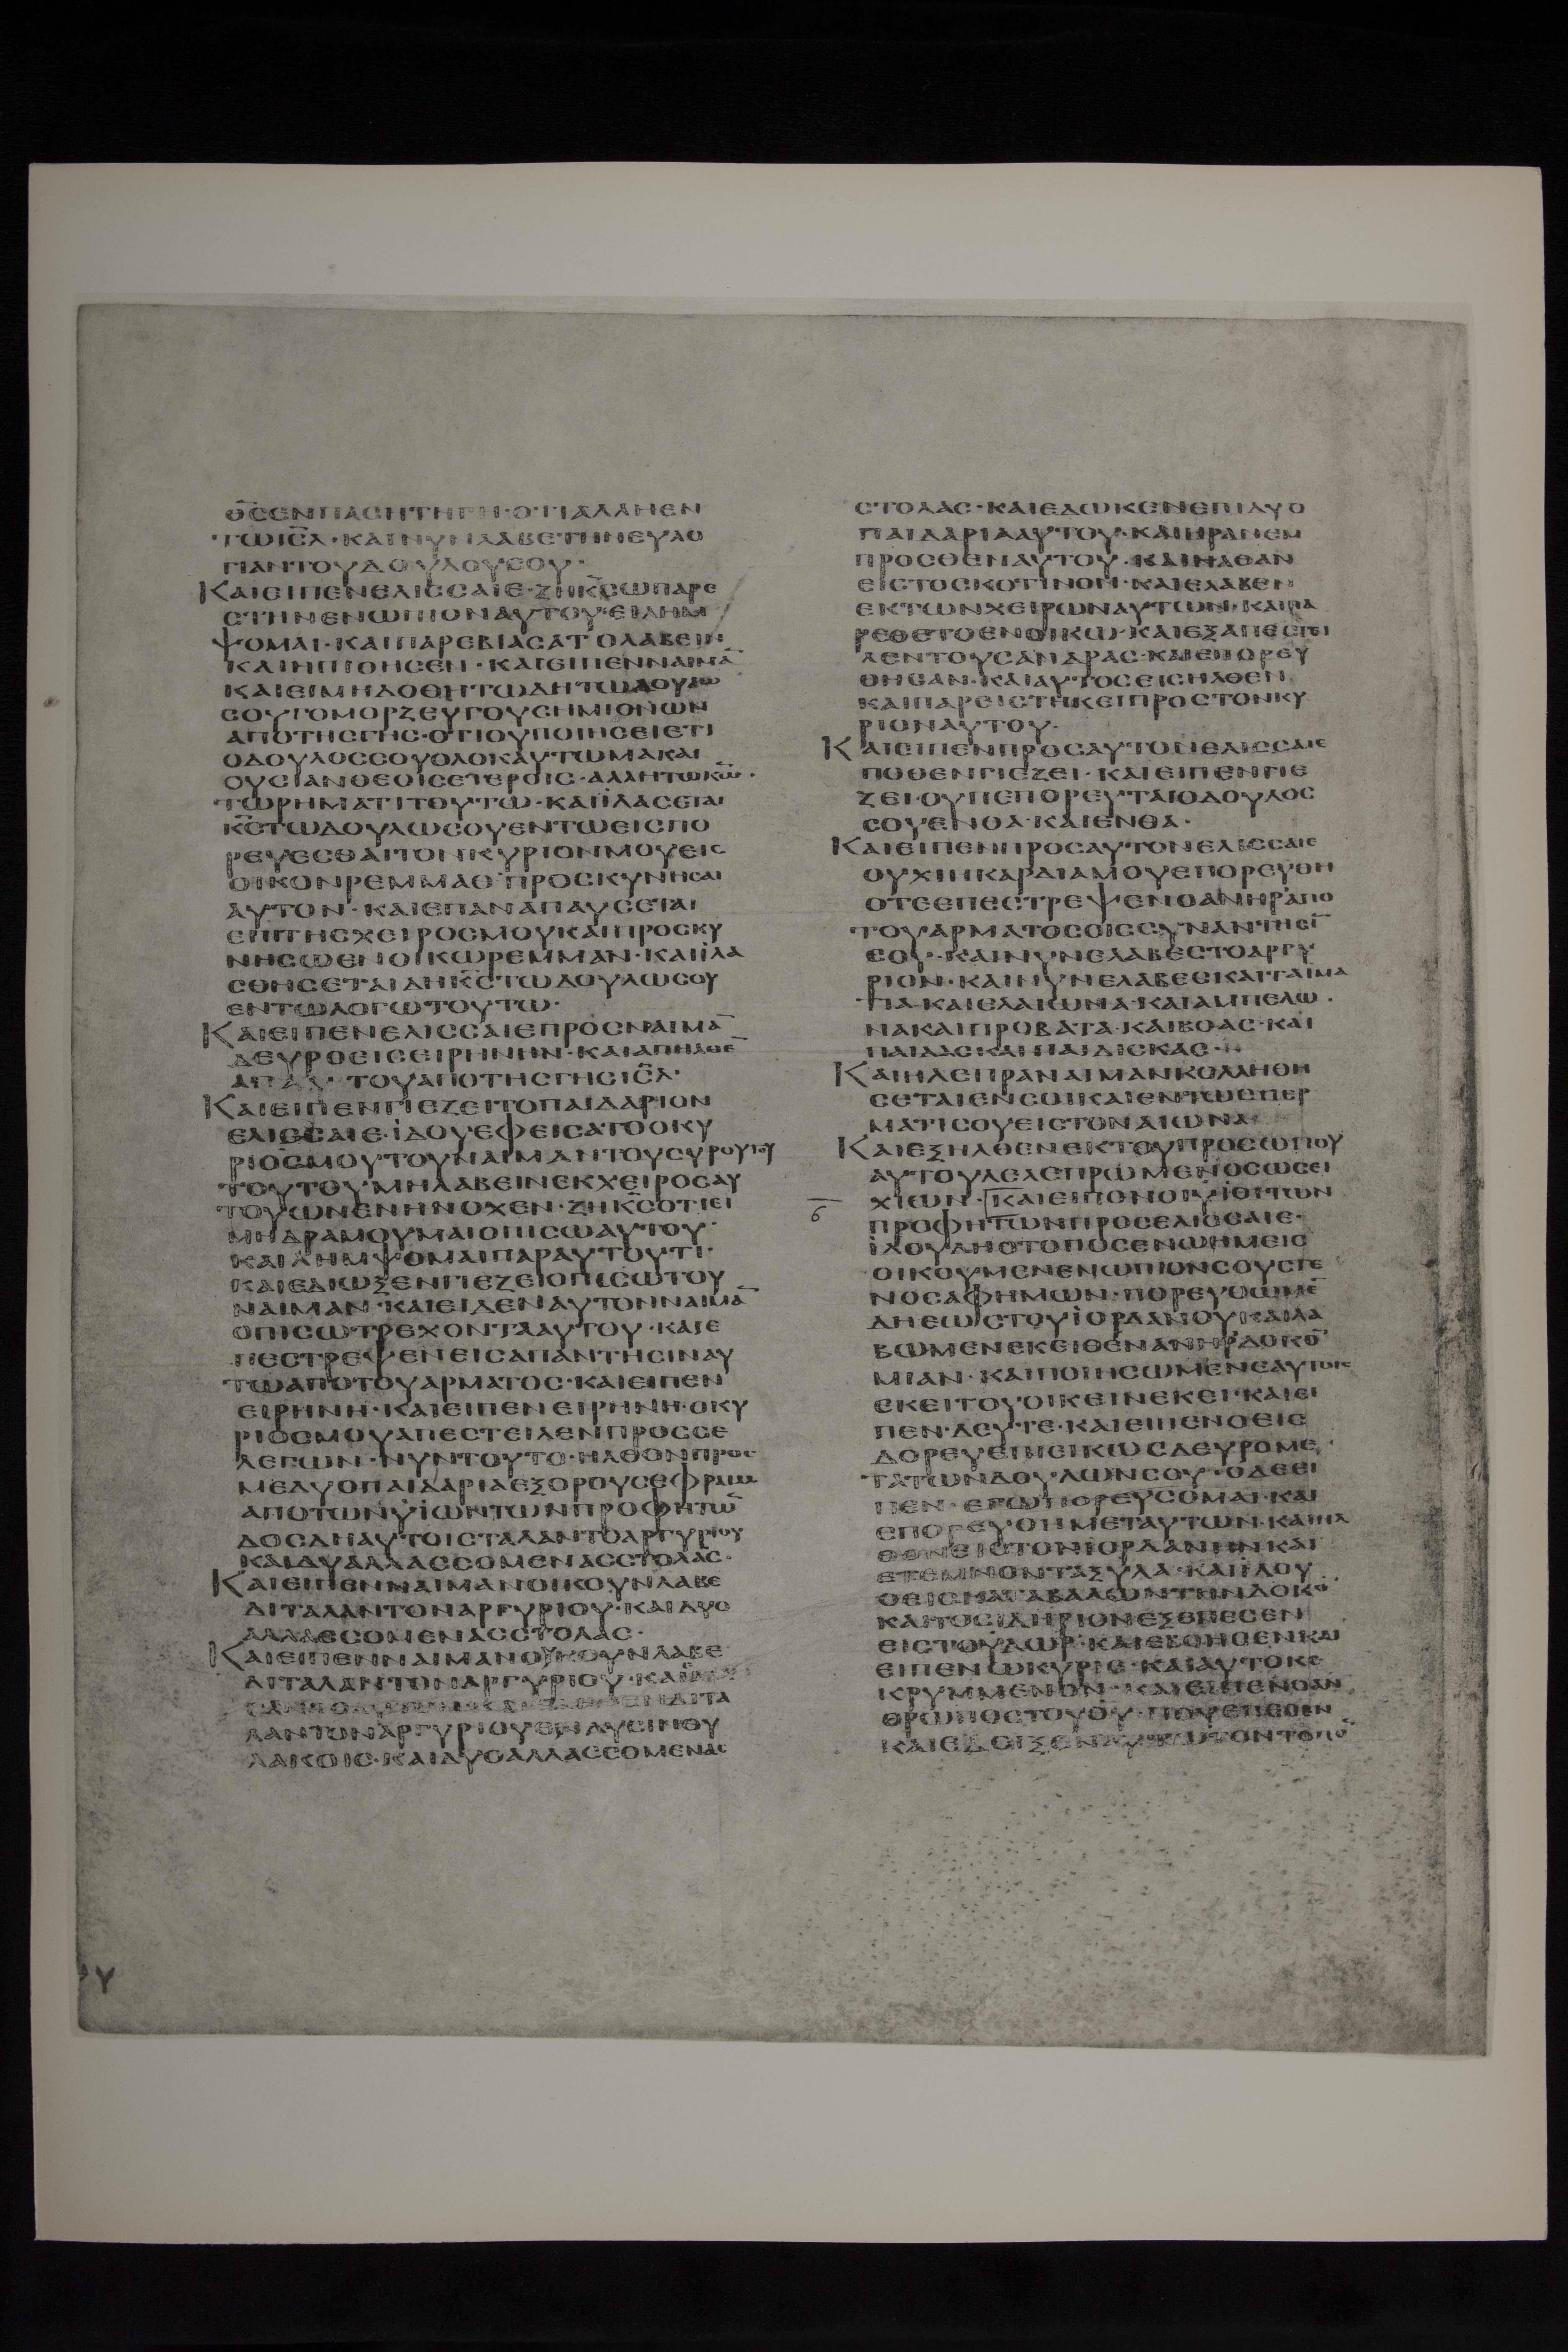 Θ̅C̅ΕΝΠΑCΗΤΗΓΗ·ΟΤΙΑΛΛΗΕΝ
ΤΩΙC̅Λ·ΚΑΙΝΥΝΛΑΒΕΤΗΝΕΥΛΟ
ΓΙΑΝΤΟΥΔΟΥΛΟΥCΟΥ·
ΚΑΙΕΙΠΕΝΕΛΙCCΑΙΕ·ΖΗΚ̅C̅ΩΠΑΡΕ
CΤΗΝΕΝΩΠΙΟΝΑΥΤΟΥ·ΕΙΛΗΜ
ΨΟΜΑΙ·ΚΑΙΠΑΡΕΒΙΑCΑΤΟΛΑΒΕΙΝ
ΚΑΙΗΠΙΘΗCΕΝ·ΚΑΙΕΙΠΕΝΝΑΙΜΑ̅
ΚΑΙΕΙΜΗΔΟΘΗΤΩΔΗΤΩΔΟΥΛΩ
CΟΥΓΟΜΟΡΖΕΥΓΟΥCΗΜΙΟΝΩΝ
ΑΠΟΤΗCΓΗC·ΟΤΙΟΥΠΟΙΗCΕΙΕΤΙ
ΟΔΟΥΛΟCCΟΥΟΛΟΚΑΥΤΩΜΑΚΑΙ
ΟΥCΙΑΝΘΕΟΙCΕΤΕΡΟΙC·ΑΛΛΗΤΩΚ̅Ω̅·
ΤΩΡΗΜΑΤΙΤΟΥΤΩ·ΚΑΙΪΛΑCΕΤΑΙ
Κ̅C̅ΤΩΔΟΥΛΩCΟΥΕΝΤΩΕΙCΠΟ
ΡΕΥΕCΘΑΙΤΟΝΚΥΡΙΟΝΜΟΥΕΙC
ΟΙΚΟΝΡΕΜΜΑΘΠΡΟCΚΥΝΗCΑΙ
ΑΥΤΟΝ·ΚΑΙΕΠΑΝΑΠΑΥCΕΤΑΙ
ΕΠΙΤΗCΧΕΙΡΟCΜΟΥΚΑΙΠΡΟCΚΥ
ΝΗCΩΕΝΟΙΚΩΡΕΜΜΑΝ·ΚΑΙΪΛΑ
CΘΗCΕΤΑΙΔΗΚ̅C̅ΤΩΔΟΥΛΩCΟΥ
ΕΝΤΩΛΟΓΩΤΟΥΤΩ·
ΚΑΙΕΙΠΕΝΕΛΙCCΑΙΕΠΡΟCΝΑΙΜΑ̅
ΔΕΥΡΟΕΙCΕΙΡΗΝΗΝ·ΚΑΙΑΠΗΛΘΕ̅
ΑΠΑΥΤΟΥΑΠΟΤΗCΓΗCΙC̅Λ·
ΚΑΙΕΙΠΕΝΓΙΕΖΕΙΤΟΠΑΙΔΑΡΙΟΝ
ΕΛΙCCΑΙΕ·ΪΔΟΥΕΦΕΙCΑΤΟΟΚΥ
ΡΙΟCΜΟΥΤΟΥΝΑΙΜΑΝΤΟΥCΥΡΟΥΤΟΥ
ΤΟΥΤΟΥΜΗΛΑΒΕΙΝΕΚΧΕΙΡΟCΑΥ
ΤΟΥΩΝΕΝΗΝΟΧΕΝ·ΖΗΚ̅C̅ΟΤΙΕΙ
ΜΗΔΡΑΜΟΥΜΑΙΟΠΙCΩΑΥΤΟΥ·
ΚΑΙΛΗΜΨΟΜΑΙΠΑΡΑΥΤΟΥΤΙ·
ΚΑΙΕΔΙΩΞΕΝΓΙΕΖΕΙΟΠΙCΩΤΟΥ
ΝΑΙΜΑΝ·ΚΑΙΕΙΔΕΝΑΥΤΟΝΝΑΙΜΑ̅
ΟΠΙCΩΤΡΕΧΟΝΤΑΑΥΤΟΥ·ΚΑΙΕ
ΠΕCΤΡΕΨΕΝΕΙCΑΠΑΝΤΗCΙΝΑΥ
ΤΩΑΠΟΤΟΥΑΡΜΑΤΟC·ΚΑΙΕΙΠΕΝ
ΕΙΡΗΝΗ·ΚΑΙΕΙΠΕΝΕΙΡΗΝΗ·ΟΚΥ
ΡΙΟCΜΟΥΑΠΕCΤΕΙΛΕΝΠΡΟCCΕ
ΛΕΓΩΝ·ΝΥΝΤΟΥΤΟ·ΗΛΘΟΝΠΡΟC
ΜΕΔΥΟΠΑΙΔΑΡΙΑΕΞΟΡΟΥCΕΦΡΑΙΜ
ΑΠΟΤΩΝΫΙΩΝΤΩΝΠΡΟΦΗΤΩ̅
ΔΟCΔΗΑΥΤΟΙCΤΑΛΑΝΤΟΑΡΓΥΡΙΟΥ
ΚΑΙΔΥΑΛΛΑCCΟΜΕΝΑCCΤΟΛΑC·
ΚΑΙΕΙΠΕΝΝΑΙΜΑΝΟΙΚΟΥΝΛΑΒΕ
ΔΙΤΑΛΑΝΤΟΝΑΡΓΥΡΙΟΥ·ΚΑΙΔΥΟ
ΑΛΛΑCCΟΜΕΝΑCCΤΟΛΑC·
ΚΑΙΕΙΠΕΝΝΑΙΜΑΝΟΥΚΟΥΝΛΑΒΕ
ΔΙΤΑΛΑΝΤΟΝΑΡΓΥΡΙΟΥ·ΚΑΙ
ΔΙΤΑ
ΛΑΝΤΟΝΑΡΓΥΡΙΟΥΕΝΔΥCΙΝΘΥ
ΛΑΚΟΙC·ΚΑΙΔΥΟΑΛΛΑCCΟΜΕΝΑC
CΤΟΛΑC·ΚΑΙΕΔΩΚΕΝΕΠΙΔΥΟ
ΠΑΙΔΑΡΙΑΑΥΤΟΥ·ΚΑΙΗΡΑΝΕΜ
ΠΡΟCΘΕΝΑΥΤΟΥ·ΚΑΙΗΛΘΑΝ
ΕΙCΤΟCΚΟΤΙΝΟΝ·ΚΑΙΕΛΑΒΕΝ
ΕΚΤΩΝΧΕΙΡΩΝΑΥΤΩΝ·ΚΑΙΠΑ
ΡΕΘΕΤΟΕΝΟΙΚΩ·ΚΑΙΕΞΑΠΕCΤΕΙ
ΛΕΝΤΟΥCΑΝΔΡΑC·ΚΑΙΕΠΟΡΕΥ
ΘΗCΑΝ·ΚΑΙΑΥΤΟCΕΙCΗΛΘΕΝ
ΚΑΙΠΑΡΕΙCΤΗΚΕΙΠΡΟCΤΟΝΚΥ
ΡΙΟΝΑΥΤΟΥ·
ΚΑΙΕΙΠΕΝΠΡΟCΑΥΤΟΝΕΛΙCCΑΙΕ
ΠΟΘΕΝΓΙΕΖΕΙ·ΚΑΙΕΙΠΕΝΓΙΕ
ΖΕΙ·ΟΥΠΕΠΟΡΕΥΤΑΙΟΔΟΥΛΟC
CΟΥΕΝΘΑ·ΚΑΙΕΝΘΑ·
ΚΑΙΕΙΠΕΝΠΡΟCΑΥΤΟΝΕΛΙCCΑΙΕ
ΟΥΧΙΗΚΑΡΔΙΑΜΟΥΕΠΟΡΕΥΘΗ
ΟΤΕΕΠΕCΤΡΕΨΕΝΟΑΝΗΡΑΠΟ
ΤΟΥΑΡΜΑΤΟCΕΙCCΥΝΑΝΤΗCΙ̅
CΟΥ·ΚΑΙΝΥΝΕΛΑΒΕCΤΟΑΡΓΥ
ΡΙΟΝ·ΚΑΙΝΥΝΕΛΑΒΕCΚΑΙΤΑΙΜΑ
ΤΙΑΚΑΙΕΛΑΙΩΝΑ·ΚΑΙΑΜΠΕΛΩ·
ΝΑΚΑΙΠΡΟΒΑΤΑ·ΚΑΙΒΟΑC·ΚΑΙ
ΠΑΙΔΑCΚΑΙΠΑΙΔΙCΚΑC·
ΚΑΙΗΛΕΠΡΑΝΑΙΜΑΝΚΟΛΛΗΘΗ
CΕΤΑΙΕΝCΟΙΚΑΙΕΝΤΩCΠΕΡ
ΜΑΤΙCΟΥΕΙCΤΟΝΑΙΩΝΑ·
ΚΑΙΕΞΗΛΘΕΝΕΚΤΟΥΠΡΟCΩΠΟΥ
ΑΥΤΟΥΛΕΛΕΠΡΩΜΕΝΟCΩCΕΙ
ϛ
ΧΙΩΝ·ΚΑΙΕΙΠΟΝΟΙΫΙΟΙΤΩΝ
ΠΡΟΦΗΤΩΝΠΡΟCΕΛΙCCΑΙΕ·
ΪΔΟΥΔΗΟΤΟΠΟCΕΝΩΗΜΕΙC
ΟΙΚΟΥΜΕΝΕΝΩΠΙΟΝCΟΥCΤΕ
ΝΟCΑΦΗΜΩΝ·ΠΟΡΕΥΘΩΜΕ̅
ΔΗΕΩCΤΟΥΪΟΡΔΑΝΟΥΚΑΙΛΑ
ΒΩΜΕΝΕΚΕΙΘΕΝΑΝΗΡΔΟΚΟ̅
ΜΙΑΝ·ΚΑΙΠΟΙΗCΩΜΕΝΕΑΥΤΟΙC
ΕΚΕΙΤΟΥΟΙΚΕΙΝΕΚΕΙ·ΚΑΙΕΙ
ΠΕΝ·ΔΕΥΤΕ·ΚΑΙΕΙΠΕΝΟΕΙC
ΔΟΡΕΥΕΠΙΕΙΚΩCΔΕΥΡΟΜΕ
ΤΑΤΩΝΔΟΥΛΩΝCΟΥ·ΟΔΕΕΙ
ΠΕΝ·ΕΓΩΠΟΡΕΥCΟΜΑΙ·ΚΑΙ
ΕΠΟΡΕΥΘΗΜΕΤΑΥΤΩΝ·ΚΑΙΗΛ
ΘΟΝΕΙCΤΟΝΙΟΡΔΑΝΗΝΚΑΙ
ΕΤΕΜΝΟΝΤΑΞΥΛΑ·ΚΑΙΪΔΟΥ
ΟΕΙCΚΑΤΑΒΑΛΛΩΝΤΗΝΔΟΚΟ̅
ΚΑΙΤΟCΙΔΗΡΙΟΝΕΞΕΠΕCΕΝ
ΕΙCΤΟΥΔΩΡ·ΚΑΙΕΒΟΗCΕΝΚΑΙ
ΕΙΠΕΝΩΚΥΡΙΕ·ΚΑΙΑΥΤΟΚΕ
ΚΡΥΜΜΕΝΟΝ·ΚΑΙΕΙΠΕΝΟΑΝ
ΘΡΩΠΟCΤΟΥΘ̅Υ̅·ΠΟΥΕΠΕCΕΝ
ΚΑΙΕΔΕΙΞΕΝΑΥΤΩΤΟΝΤΟΠΟ̅